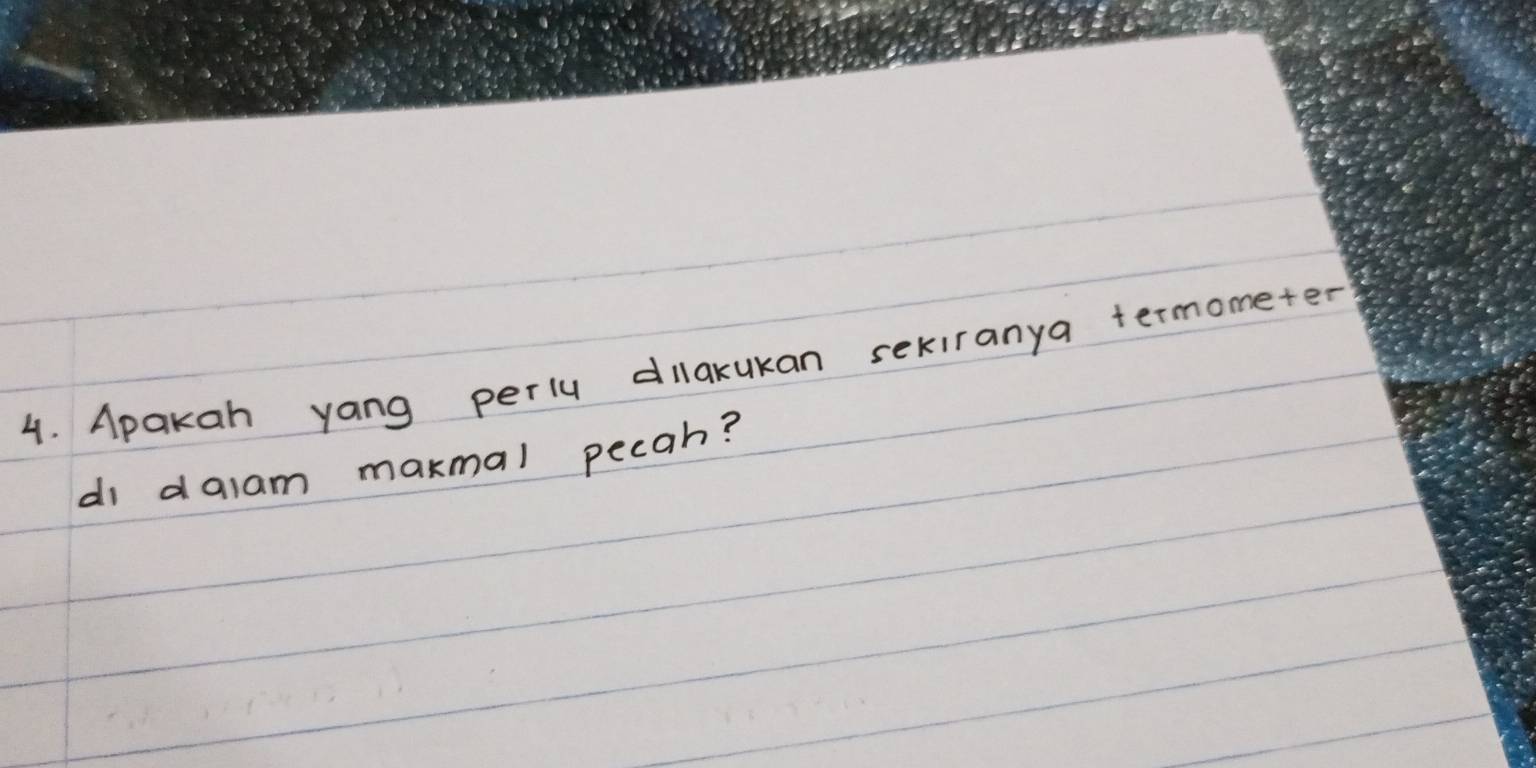 4. Apakah yang perlu dilakukan sekiranya termometer
di dalam makmal pecah?